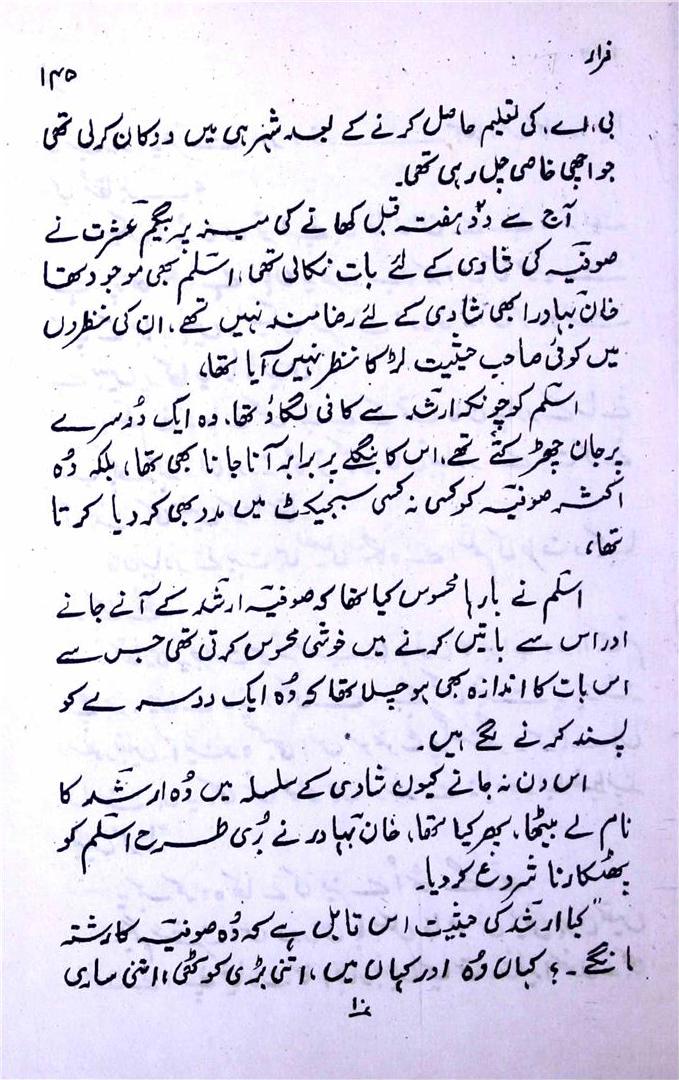 فرار
۱۴۵
بی، اے، کی تعلیم حاصل کرنے کے بعد شہر ہی میں دوکان کرلی تھی
جو اچھی خاصی چل رہی تھی۔
آج سے دو ہفتہ قبل کھانے کی میز پر بیگم عشرت نے
صوفیہ کی شادی کے لئے بات نکالی تھی، اسلم بھی موجود تھا
خان بہادر ابھی شادی کے لئے رضامند نہیں تھے، ان کی نظروں
میں کوئی صاحبِ حیثیت لڑکا نظر نہیں آیا تھا،
اسلم کو چونکہ ارشد سے کافی لگاؤ تھا، وہ ایک دُوسرے
پر جان چھڑکتے تھے، اس کا بنگلے پر برابر آنا جانا بھی تھا، بلکہ وُہ
اکثر صوفیہ کو کسی نہ کسی سبجیکٹ میں مدد بھی کر دیا کرتا
تھا،
اسلم نے بارہا محسوس کیا تھا کہ صوفیہ ارشد کے آنے جانے
اور اس سے باتیں کرنے میں خوشی محسوس کرتی تھی جس سے
اس بات کا اندازہ بھی ہو چلا تھا کہ وُہ ایک دوسرے کو
پسند کرنے لگے ہیں۔
اس دن نہ جانے کیوں شادی کے سلسلہ میں وُہ ارشد کا
نام لے بیٹھا، پھر کیا تھا، خان بہادر نے بُری طرح اسلم کو
پھٹکارنا شروع کر دیا۔
"کیا ارشد کی حیثیت اس قابل ہے کہ وُہ صوفیہ کا رشتہ
مانگے۔؟ کہاں وُہ اور کہاں میں، اتنی بڑی کوٹھی، اتنی ساری